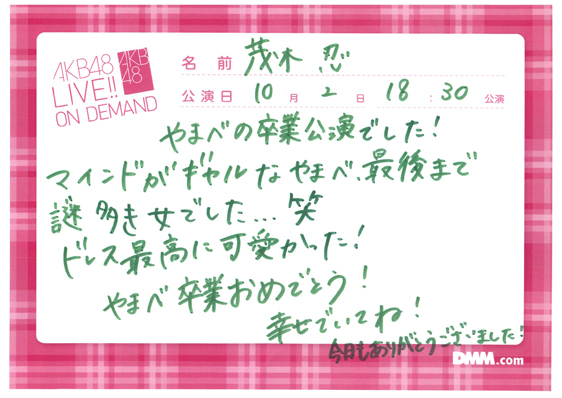 AKB48
LIVE!!
ON DEMAND
AKB
48
名前 茂木 忍
公演日 10月2日 18:30公演
やまべの卒業公演でした!
マインドがギャルなやまべ、最後まで
謎多き女でした...笑
ドレス最高に可愛かった!
やまべ卒業おめでとう!
幸せでいてね!
今日もありがとうございました!
DMM.com